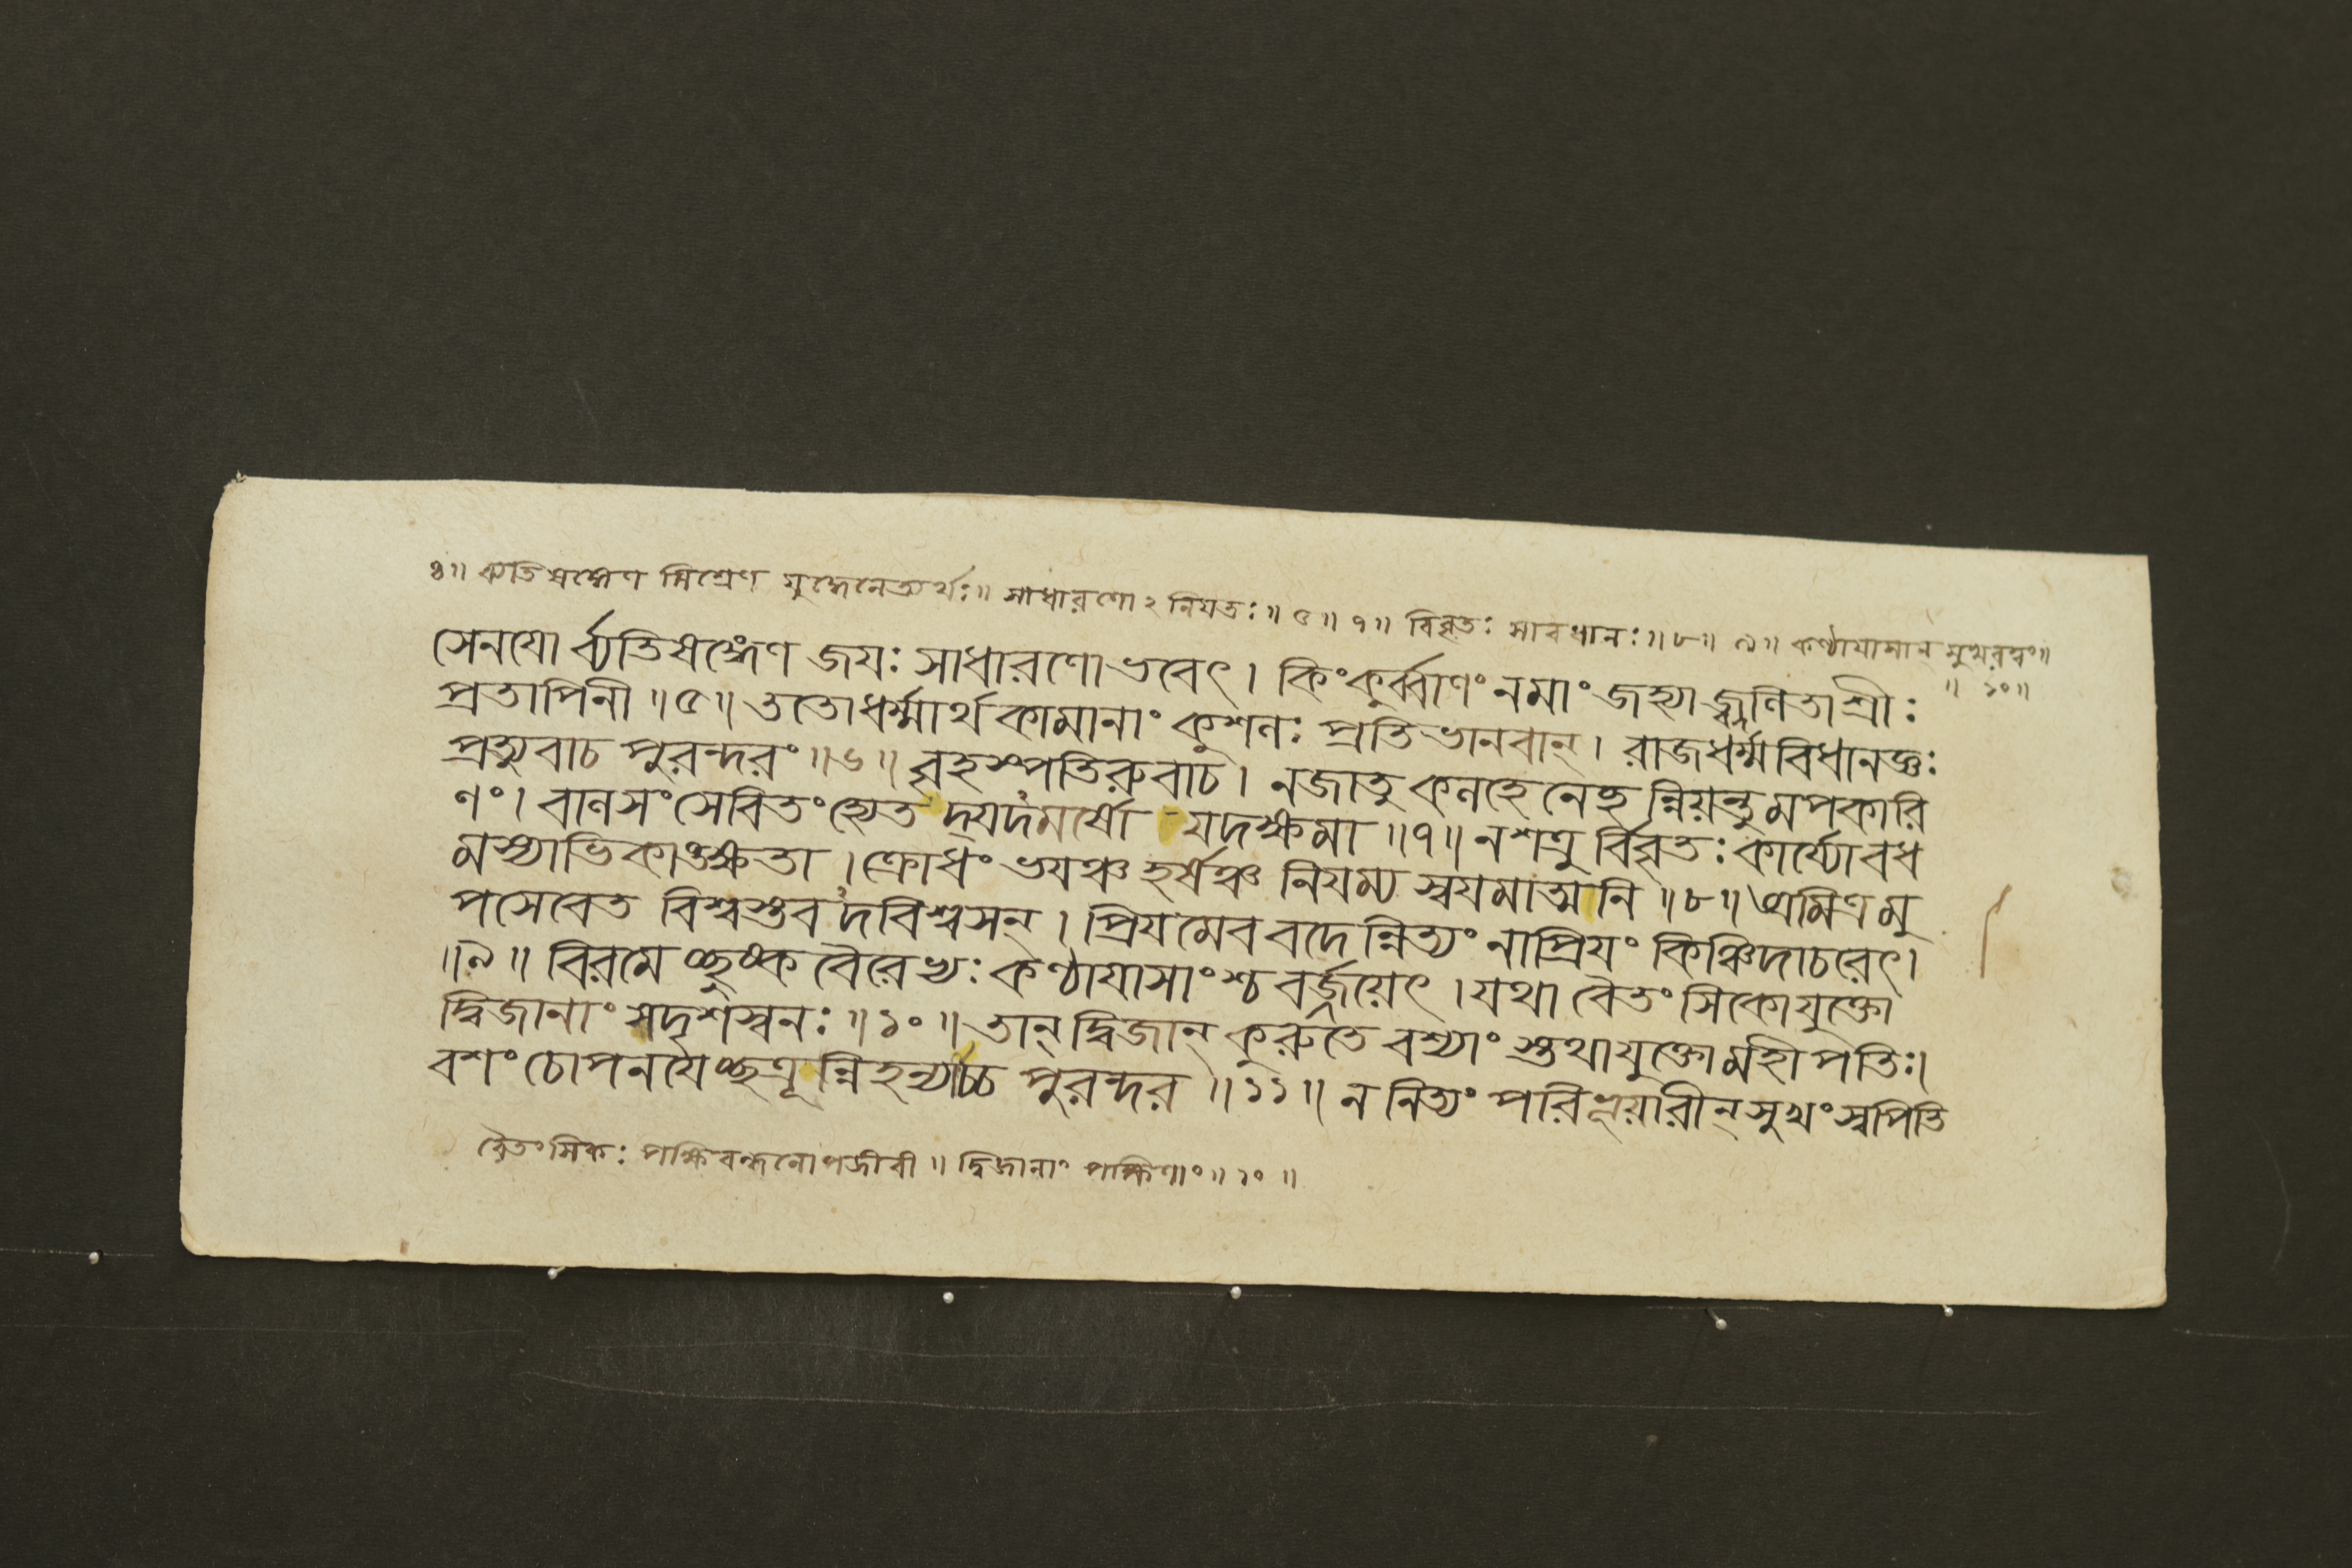 ৪॥ ব্যতিষঙ্গেণ মিশ্রেণ যুদ্ধেনেত্যর্থঃ॥ সাধারণোঽনিযতঃ॥ ৫॥ ৭॥ বিবৃতঃ সাবধানঃ॥ ৮॥ ৯॥ কণ্ঠাযাসান্ মুখরত্বং॥
॥ ১০॥
সেনযো র্ব্যতিষঙ্গেণ জযঃ সাধারণো ভবেৎ। কিংকুর্ব্বাণং নমাং জহ্যা জ্জ্বলিতা শ্রীঃ
প্রতাপিনী॥ ৫॥ ততোধর্ম্মার্থ কামানাং কুশলঃ প্রতিভানবান্। রাজধর্ম্মবিধানজ্ঞঃ
প্রত্যুবাচ পুরন্দরং॥ ৬॥ বৃহস্পতিরুবাচ। নজাতু কলহে নেচ্ছ ন্নিয়ন্তু মপকারি
ণং। বালসংসেবিতংহ্যেত দ্যদমর্ষো যদক্ষমা॥ ৭॥ নশত্রু র্বিবৃতঃ কার্য্যো বধ
মস্যাভিকাঙ্ক্ষতা। ক্রোধং ভযঞ্চ হর্ষঞ্চ নিযম্য স্বযমাত্মনি॥ ৮॥ অমিত্রমু
পসেবেত বিশ্বস্তব দবিশ্বসন্। প্রিযমেব বদে ন্নিত্যং নাপ্রিযং কিঞ্চিদাচরেৎ।
॥ ৯॥ বিরমে চ্ছুষ্ক বৈরেভ্যঃ কণ্ঠাযাসাংশ্চ বর্জ্জয়েৎ। যথা বৈতংসিকো যুক্তো
দ্বিজানাং সদৃশস্বনঃ॥ ১০॥ তান্ দ্বিজান্ কুরুতে বশ্যাং স্তথা যুক্তো মহীপতিঃ।
বশং চোপনযেচ্ছত্রূ ন্নিহন্যাচ্চ পুরন্দর॥ ১১॥ ন নিত্যং পরিভূয়ারীন্ সুখং স্বপিতি
বৈতংসিকঃ পক্ষিবন্ধনোপজীবী॥ দ্বিজানাং পক্ষিণাং॥ ১০॥